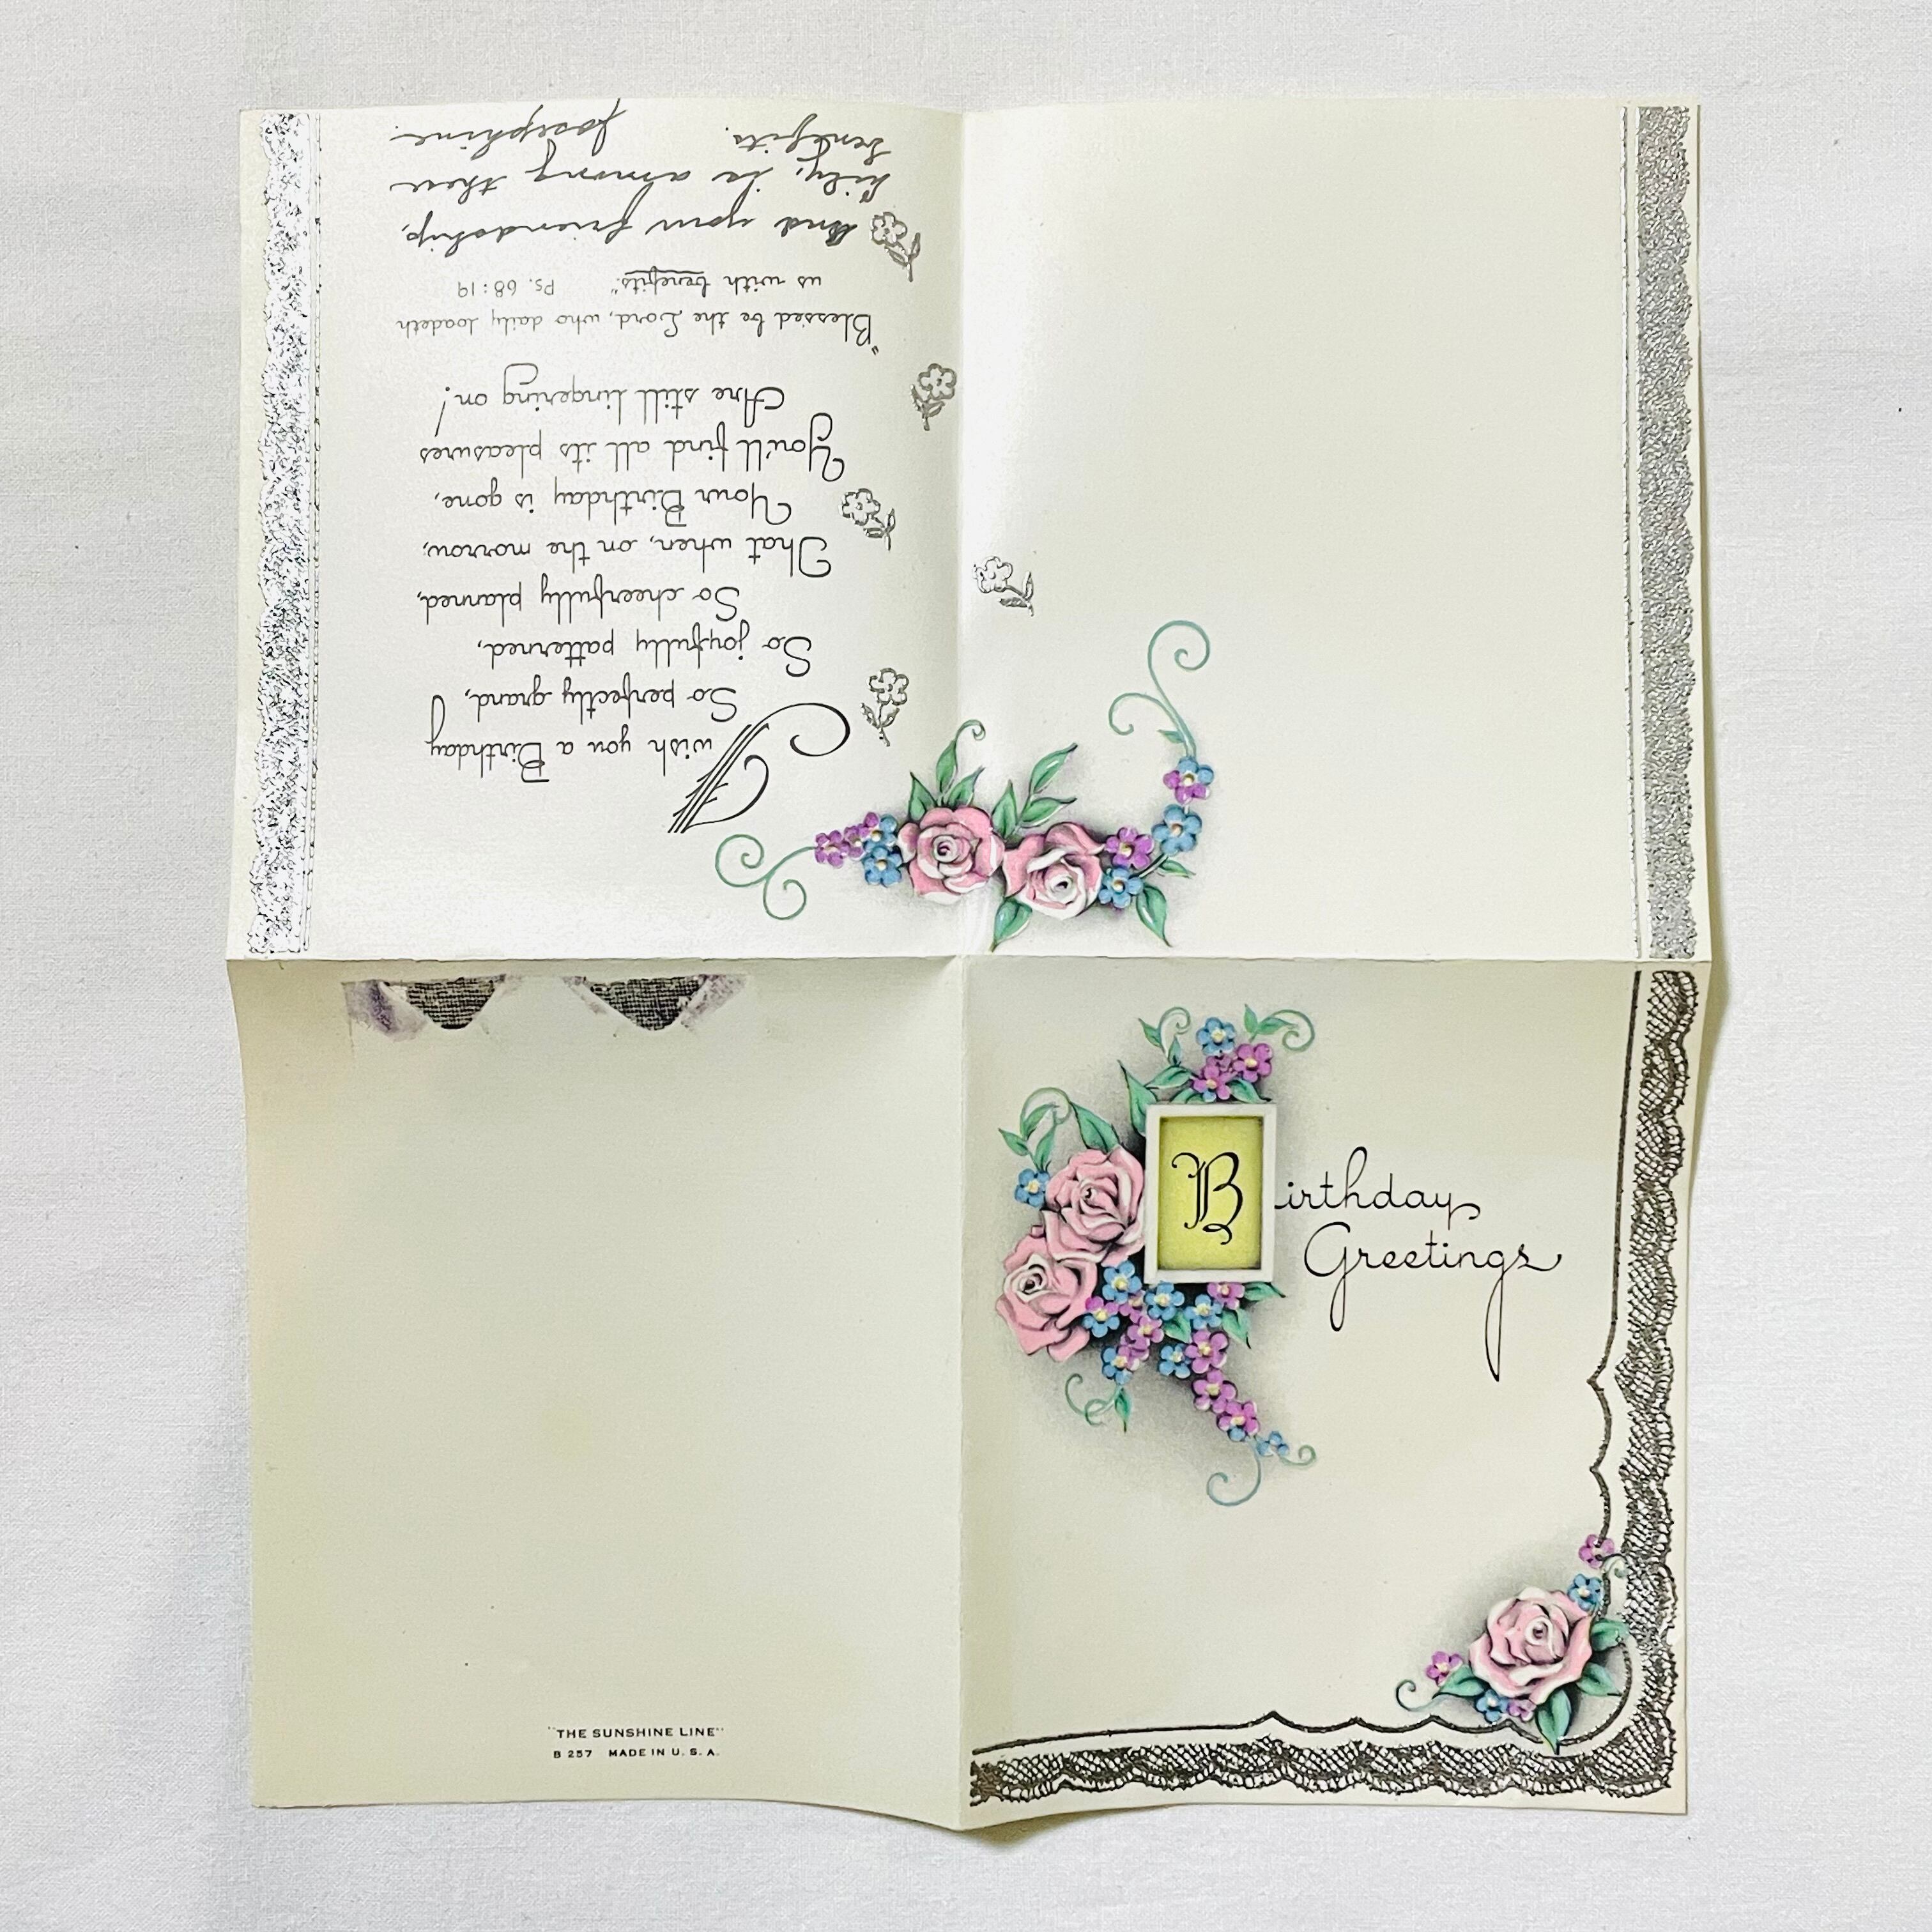 Birthday
Greetings
I wish you a Birthday
So perfectly grand,
So joyfully patterned,
So cheerfully planned,
That when, on the morrow,
Your Birthday is gone,
You'll find all its pleasures
Are still lingering on!
"Blessed be the Lord, who daily loadeth
us with benefits." Ps. 68:19
And your friendship,
Lily, is among these
benefits.
Josephine.
"THE SUNSHINE LINE"
B 257 MADE IN U. S. A.